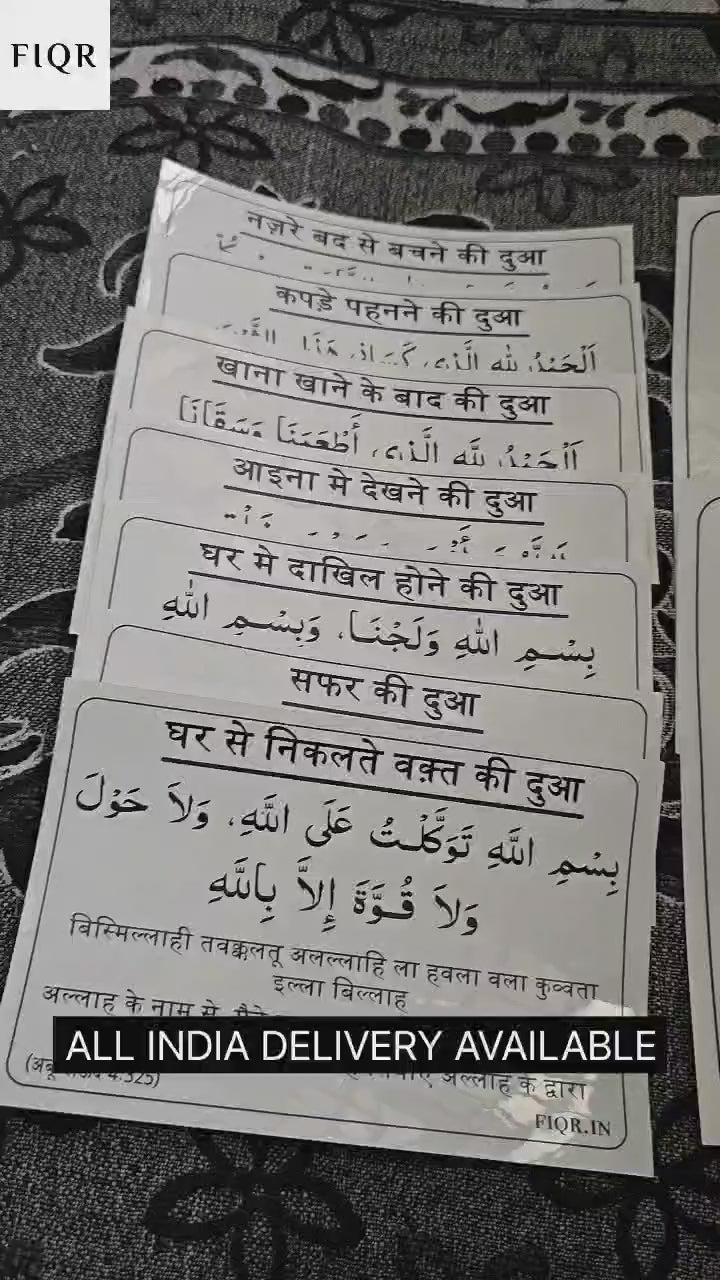 FIQR
नज़रे बद से बचने की दुआ
कपड़े पहनने की दुआ
اَلْحَمْدُ لِلّٰهِ الَّذِي
खाना खाने के बाद की दुआ
اَلْحَمْدُ لِلّٰهِ الَّذِي أَطْعَمَنَا وَسَقَانَا
आइना मे देखने की दुआ
घर मे दाखिल होने की दुआ
بِسْمِ اللّٰهِ وَلَجْنَا، وَبِسْمِ اللّٰهِ
सफर की दुआ
घर से निकलते वक़्त की दुआ
بِسْمِ اللَّهِ تَوَكَّلْتُ عَلَى اللَّهِ، وَلاَ حَوْلَ
وَلاَ قُوَّةَ إِلاَّ بِاللَّهِ
बिस्मिल्लाही तवक्कलतू अलल्लाहि ला हवला वला कुव्वता
इल्ला बिल्लाह
अल्लाह के नाम से
ALL INDIA DELIVERY AVAILABLE
अल्लाह के द्वारा
FIQR.IN